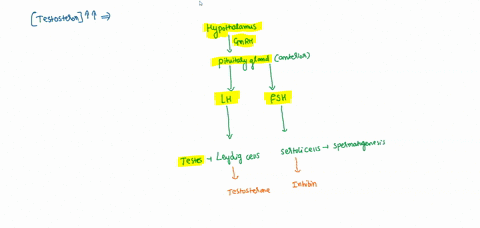 [Testosteron]↑↑ ⇒
Hypothalamus
GnRH
Pituitary gland (anterior)
LH FSH
Testes → Leydig cells sertoli cells → spermatogenesis
Testosterone Inhibin